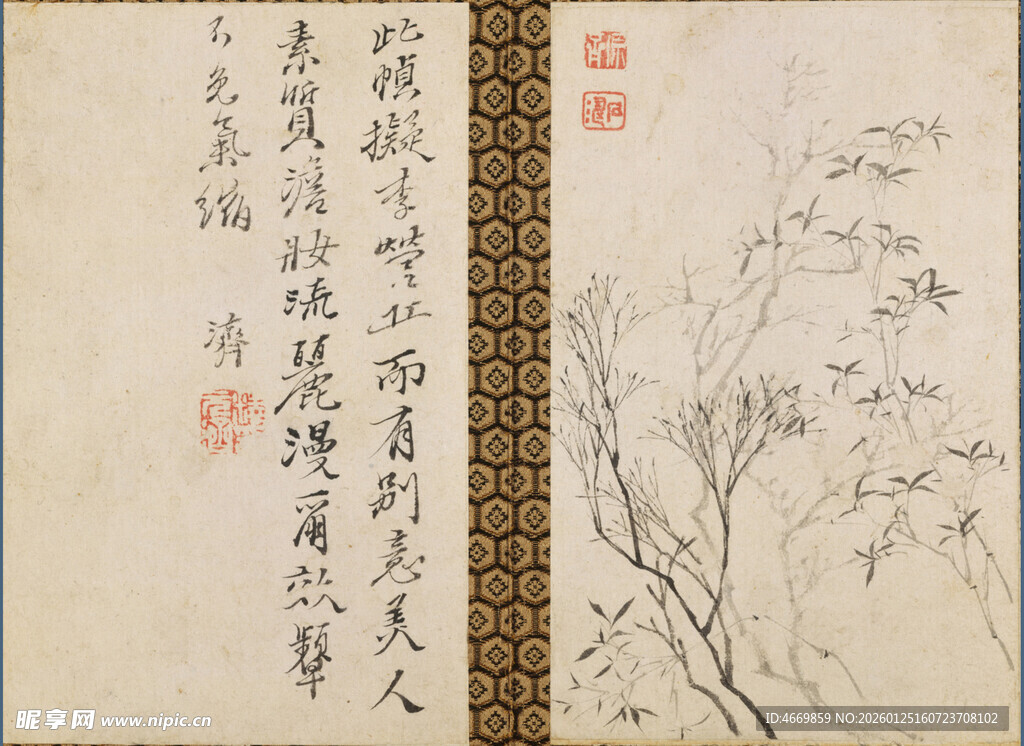 此幀擬李營丘而有別意美人
素質澹妝流麗漫爾效顰
不免氣縮
濟
昵享网 www.nipic.cn
ID:4669859 NO:20260125160723708102